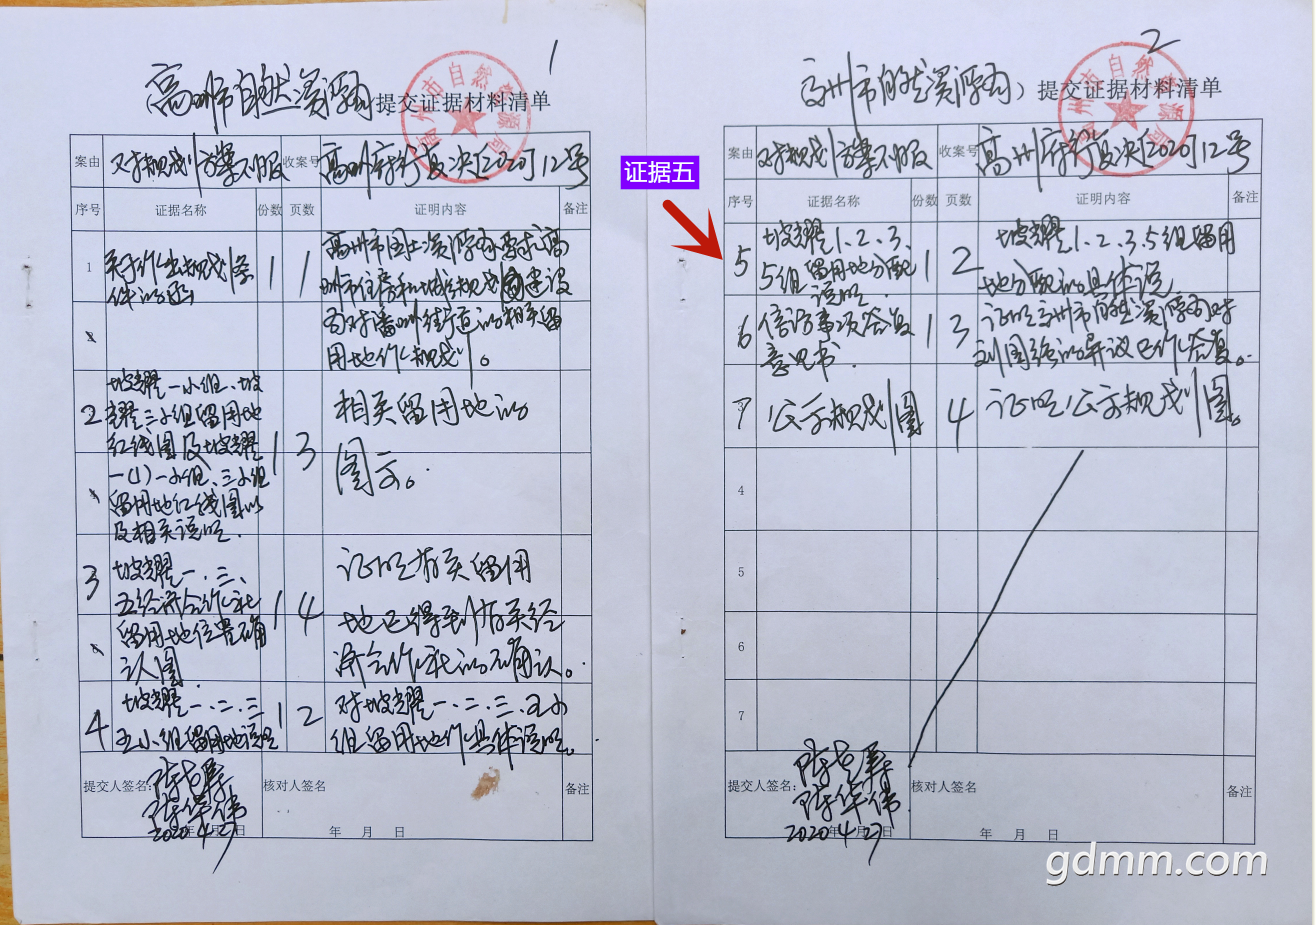 1
高州市自然资源局 提交证据材料清单
高州市自然资源局
案由 对规划方案不服 收案号 高州府行复决[2020]12号
序号 证据名称 份数 页数 证明内容 备注
1
件的函
1 1
高州市国土资源局要求高
州市住房和城乡规划建设
局对潘州街道的相关留
用地作规划。
2
坡耀一小组、坡
耀三小组留用地
红线图及坡耀
一(1)一小组、三小组
留用地红线图以
及相关说明.
1 3
相关留用地的
图示。
3
坡耀一.三、
五经济合作社
留用地位置确
认图.
1 4
证明有关留用
地已得到有关经
济合作社的确认。
4
坡耀一.二.三
五小组留用地说明
1 2
对坡耀一.二.三.五小
组留用地作具体说明。
提交人签名:
2020年4月27日
核对人签名
年 月 日
备注
2
高州市自然资源局) 提交证据材料清单
高州市自然资源局
案由 对规划方案不服 收案号 高州府行复决[2020]12号
证据五
序号 证据名称 份数 页数 证明内容 备注
5
坡耀1.2.3.
5组留用地分配
说明.
1 2
坡耀1.2.3.5组留用
地分配的具体说
6
信访事项答复
意见书.
1 3
证明高州市自然资源局对
刘国强的异议已作答复。
7
公示规划图
4
证明公示规划图。
4
5
6
7
提交人签名:
2020年4月27日
核对人签名
年 月 日
备注
gdmm.com